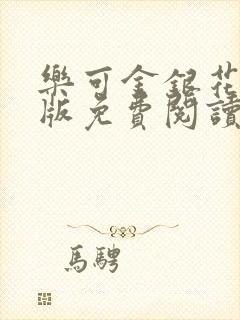 樂可金銀花
版免費閱讀
馬騁